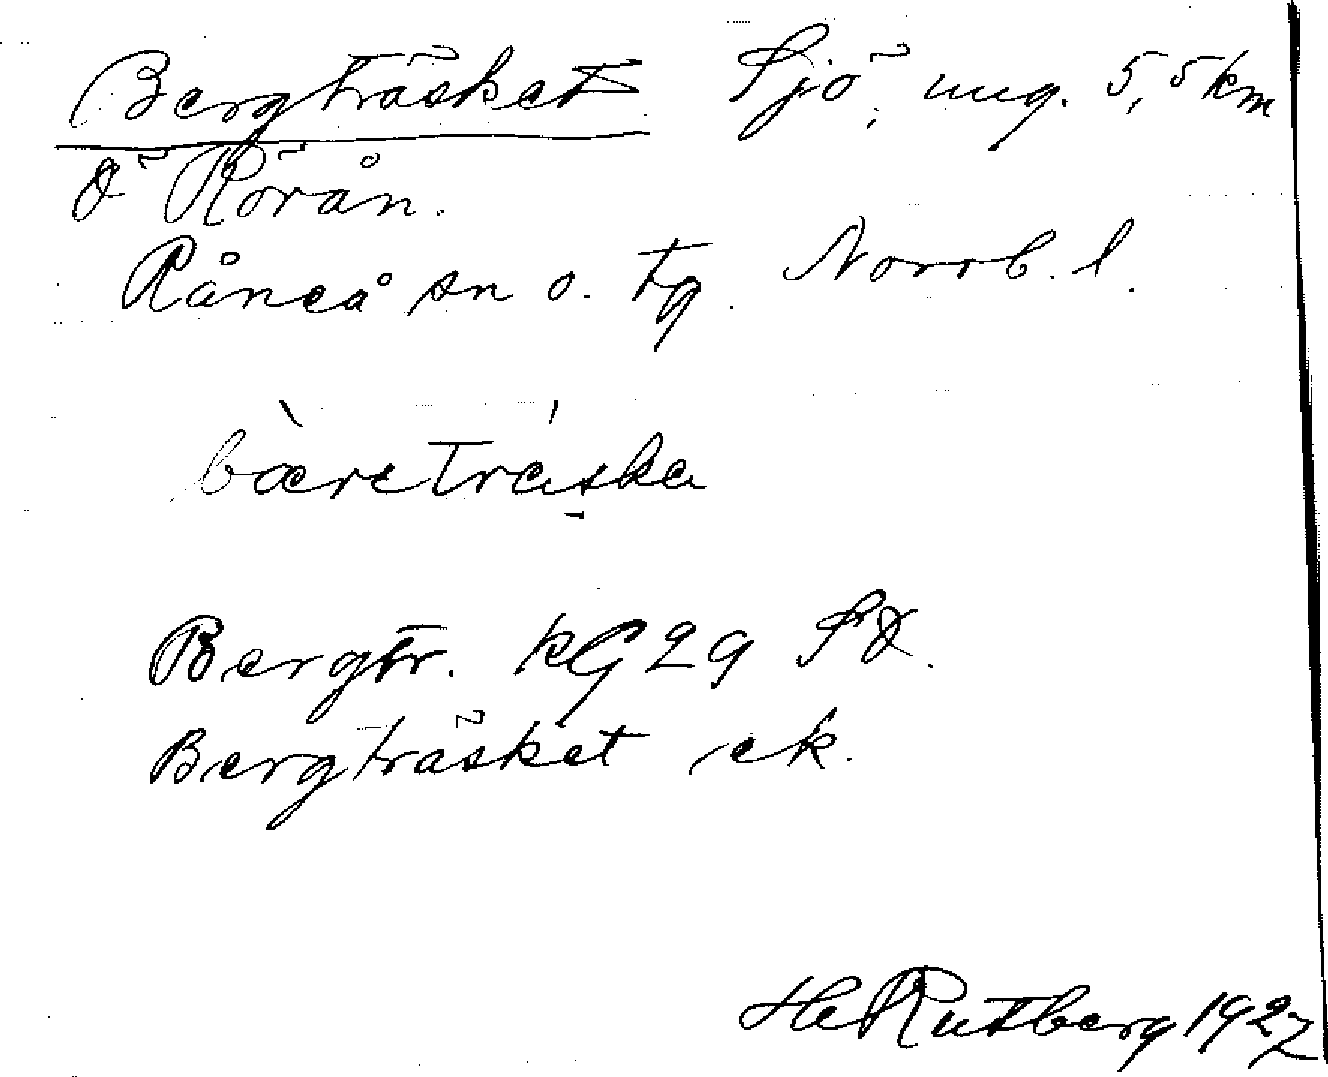 Bergträsket Sjö, ung. 5,5 km
Ö Rörån.
Råneå sn o. tg. Norrb. l.
bæ̀retrǽska
Bergtr. kG29 SÖ.
Bergträsket ek.
He Rutberg 1927